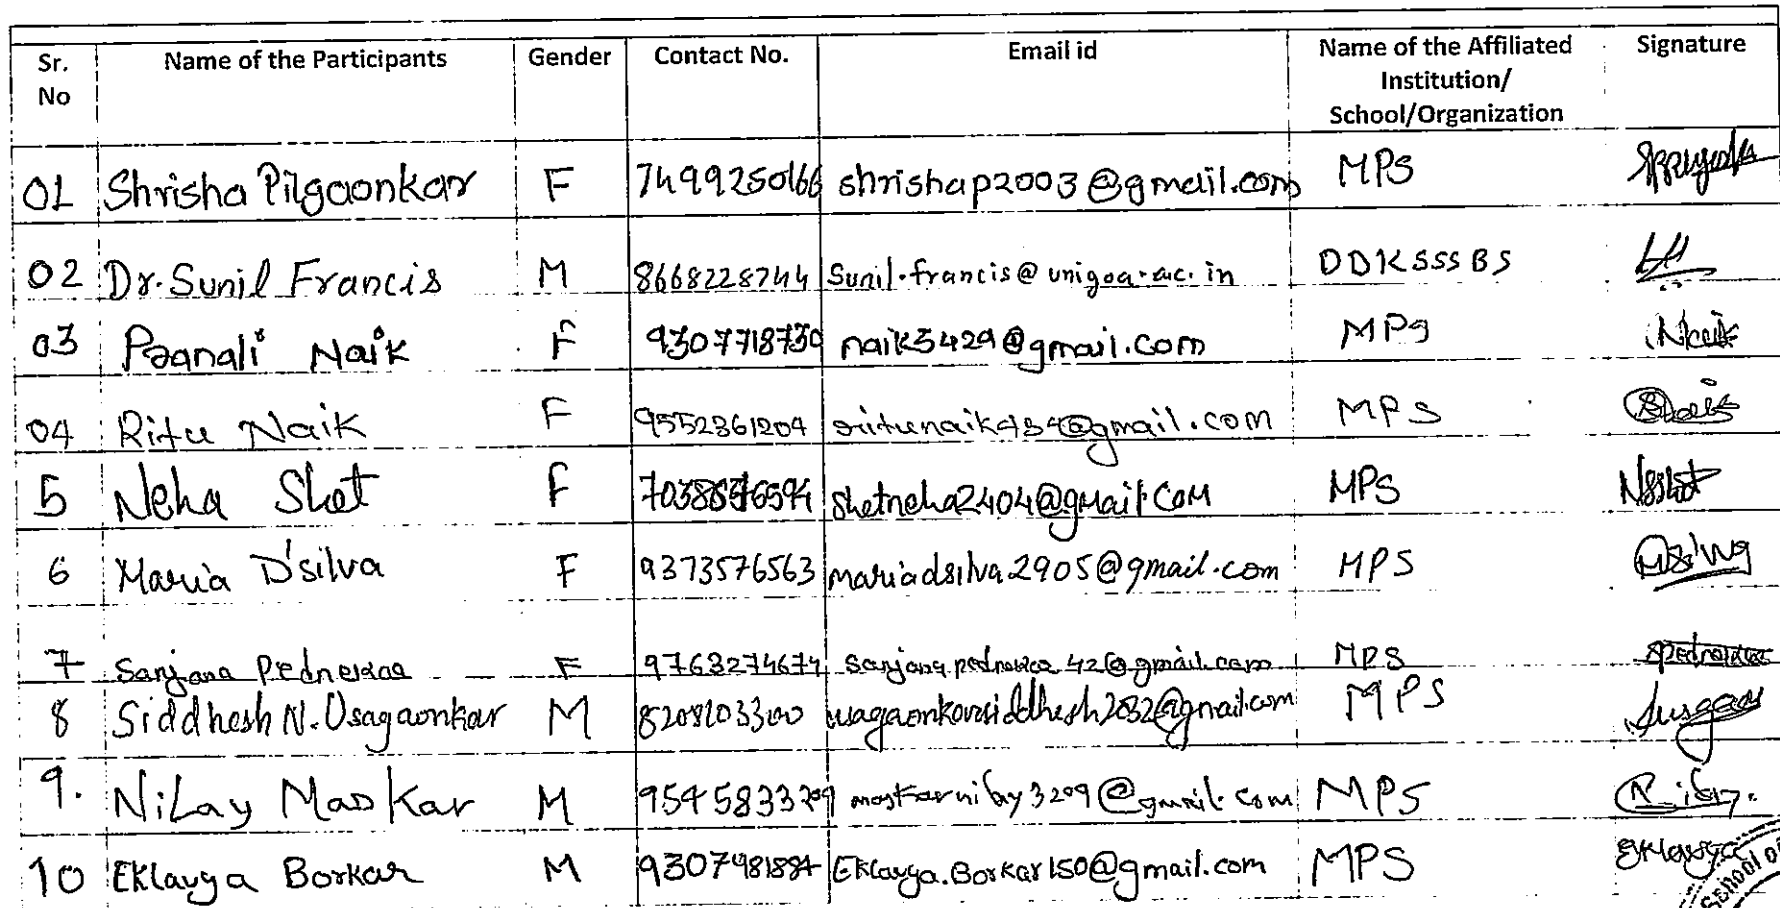 Sr. No Name of the Participants Gender Contact No. Email id Name of the Affiliated Institution/ School/Organization Signature
01 Shrisha Pilgaonkar F 7499250166 shrishap2003@gmail.com MPS
02 Dr. Sunil Francis M 8668228744 Sunil.francis@unigoa.ac.in DDKSSSBS
03 Pranali Naik F 9307718730 naik5429@gmail.com MPS Naik
04 Ritu Naik F 9552361204 ritunaik434@gmail.com MPS
5 Neha Shet F shetneha2404@gmail.com MPS NSShet
6 Maria D'silva F 9373576563 mariadsilva2905@gmail.com MPS
7 Sanjana Pednekar F 9763274674 MPS
8 Siddhesh N. Usagaonkar M 8208203300 usagaonkarsiddhesh2032@gmail.com MPS
9. Nilay Maskar M 9545833209 maskarnilay3209@gmail.com MPS
10 Eklavya Borkar M 9307981884 Eklavya.Borkar150@gmail.com MPS Eklavya
School of